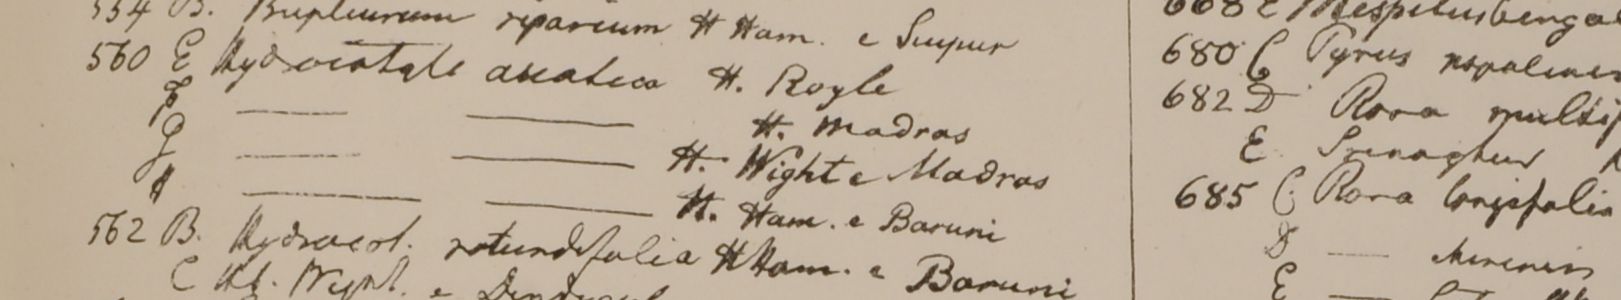 554 B. Bupleurum riparium H Ham. e Suupur
560 E Hydrocotyle asiatica H. Royle
F — — H. Madras
G — — H. Wight e Madras
H — — H. Ham. e Baruni
562 B. Hydrocot. rotundifolia H Ham. e Baruni
C Hb. Wight. e Dindygul
668 E Mespilus benga
680 C Pyrus nepalens
682 D Rosa multif
E Srenaghur
685 C. Rosa longifolia
D —
E —